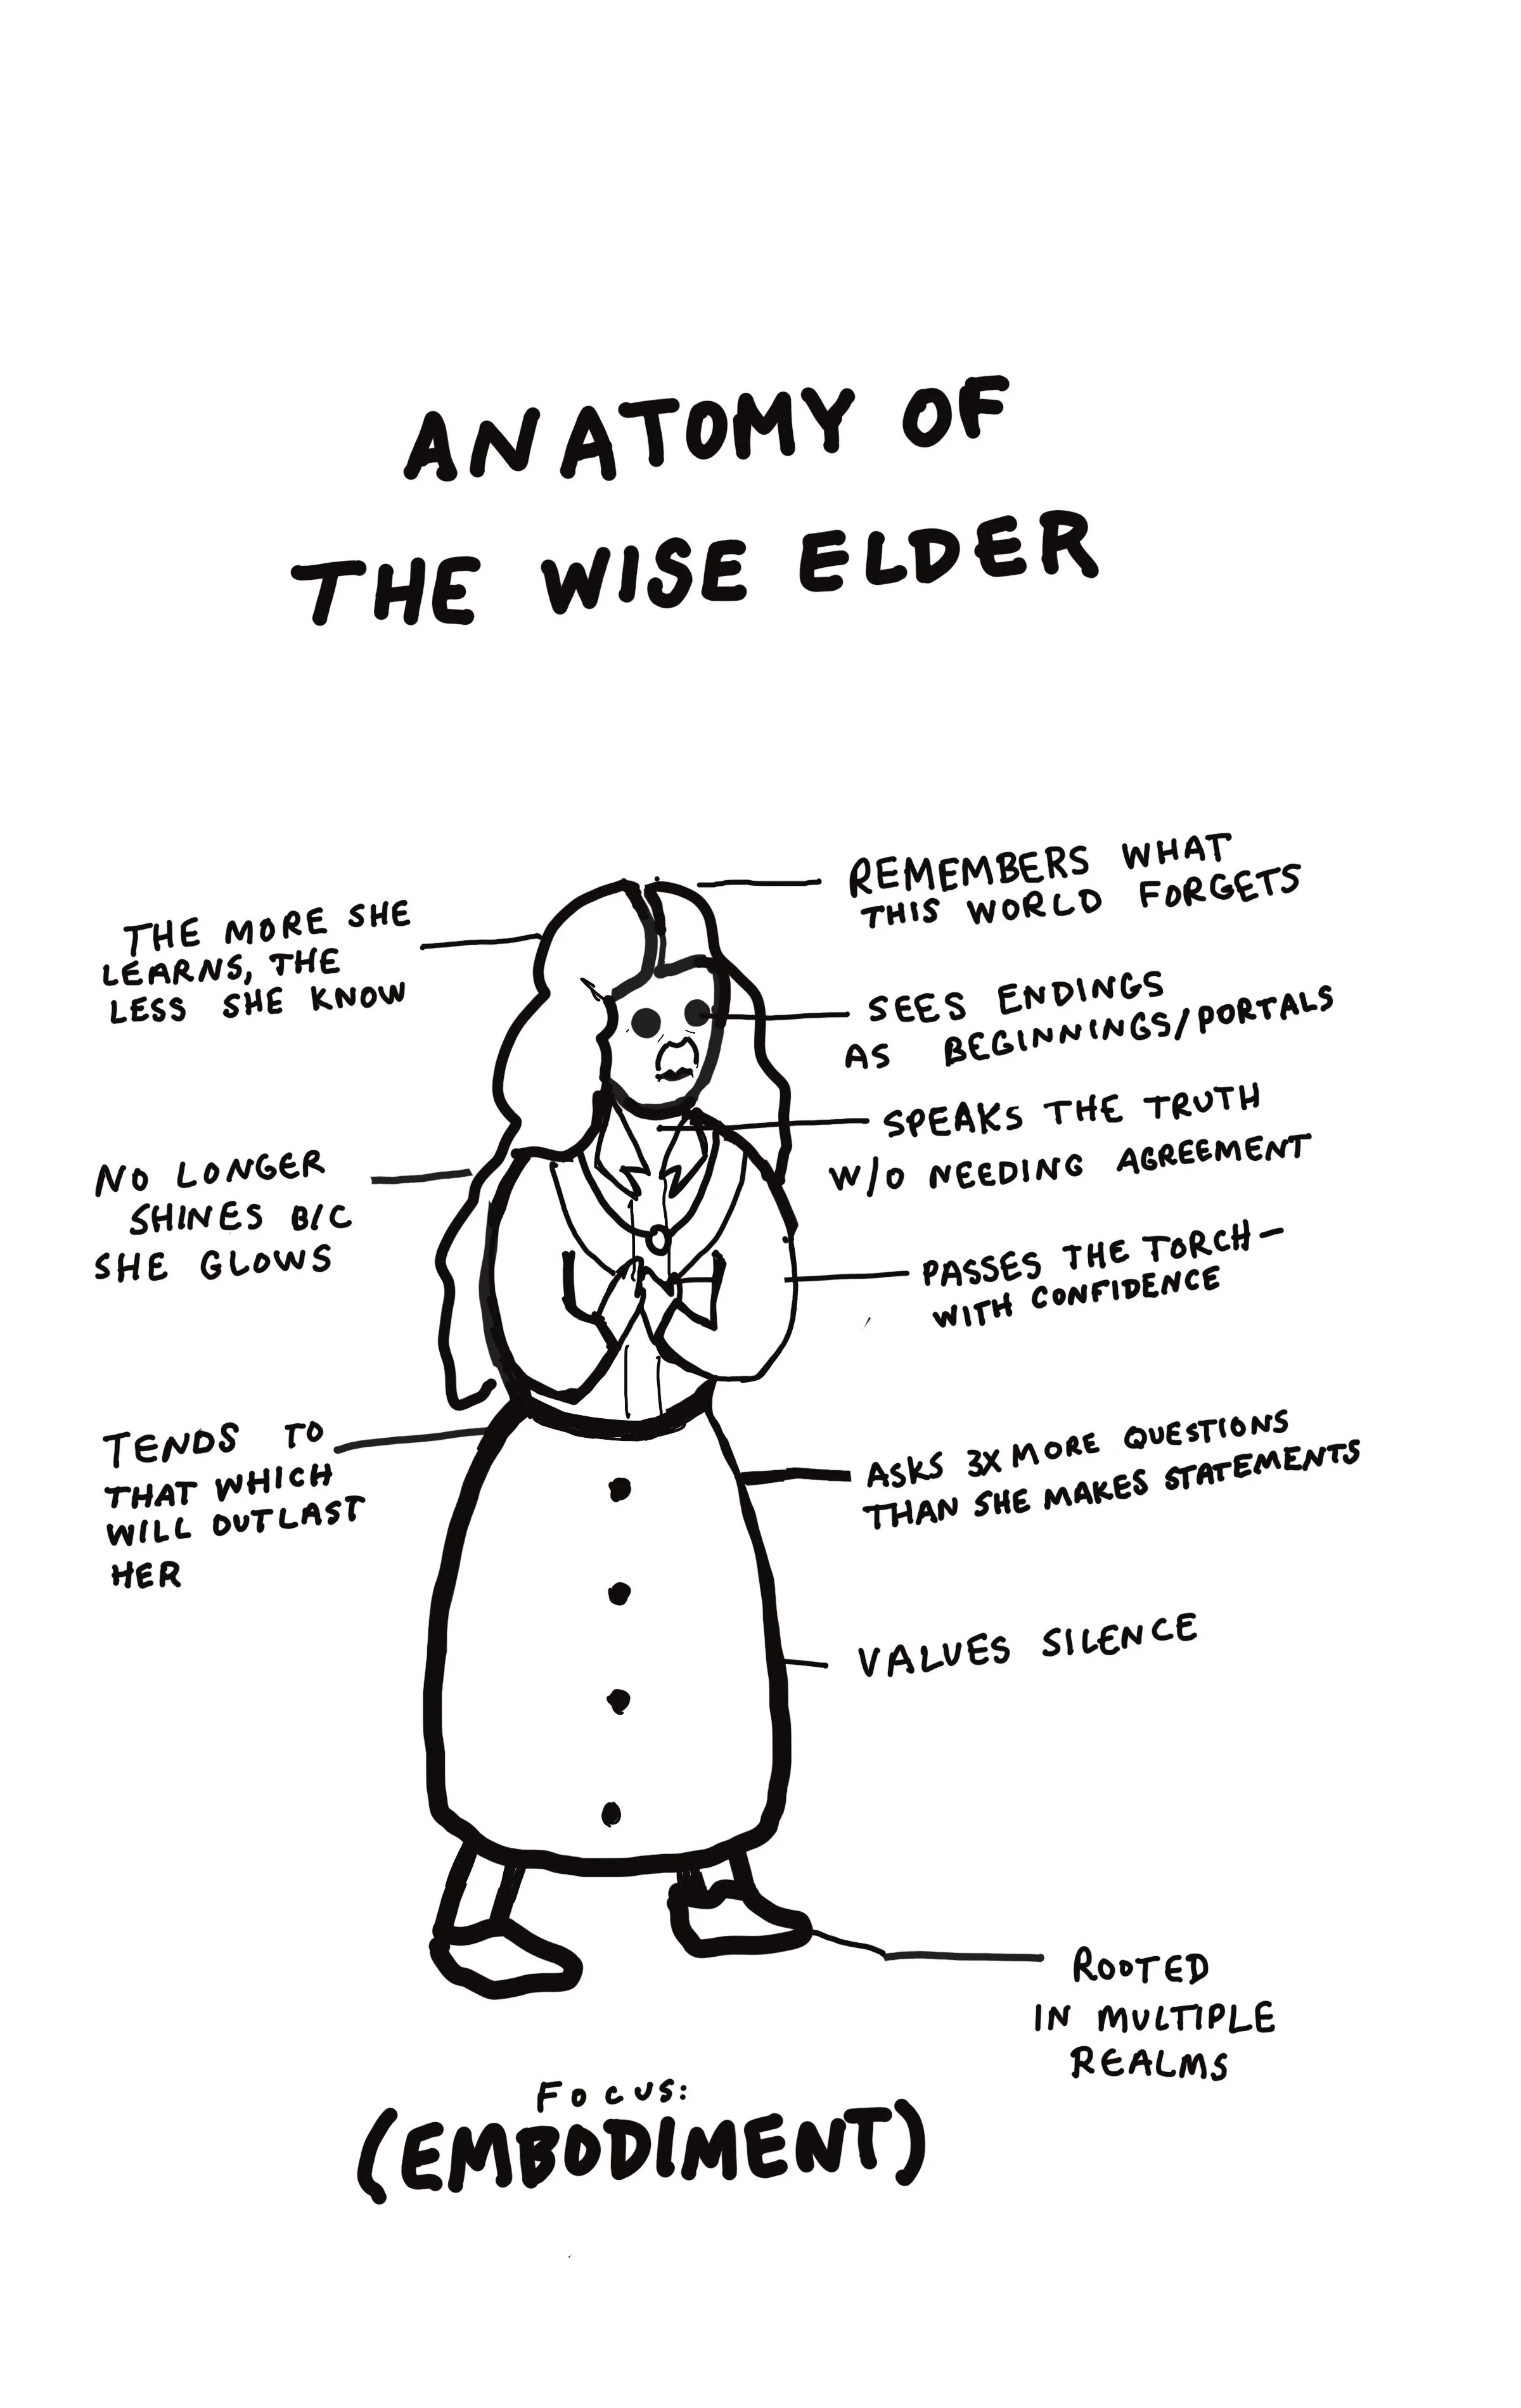 ANATOMY OF
THE WISE ELDER
THE MORE SHE
LEARNS, THE
LESS SHE KNOW
NO LONGER
SHINES B/C
SHE GLOWS
TENDS TO
THAT WHICH
WILL OUTLAST
HER
REMEMBERS WHAT
THIS WORLD FORGETS
SEES ENDINGS
AS BEGINNINGS/PORTALS
SPEAKS THE TRUTH
W/O NEEDING AGREEMENT
PASSES THE TORCH—
WITH CONFIDENCE
ASKS 3X MORE QUESTIONS
THAN SHE MAKES STATEMENTS
VALUES SILENCE
ROOTED
IN MULTIPLE
REALMS
FOCUS:
(EMBODIMENT)